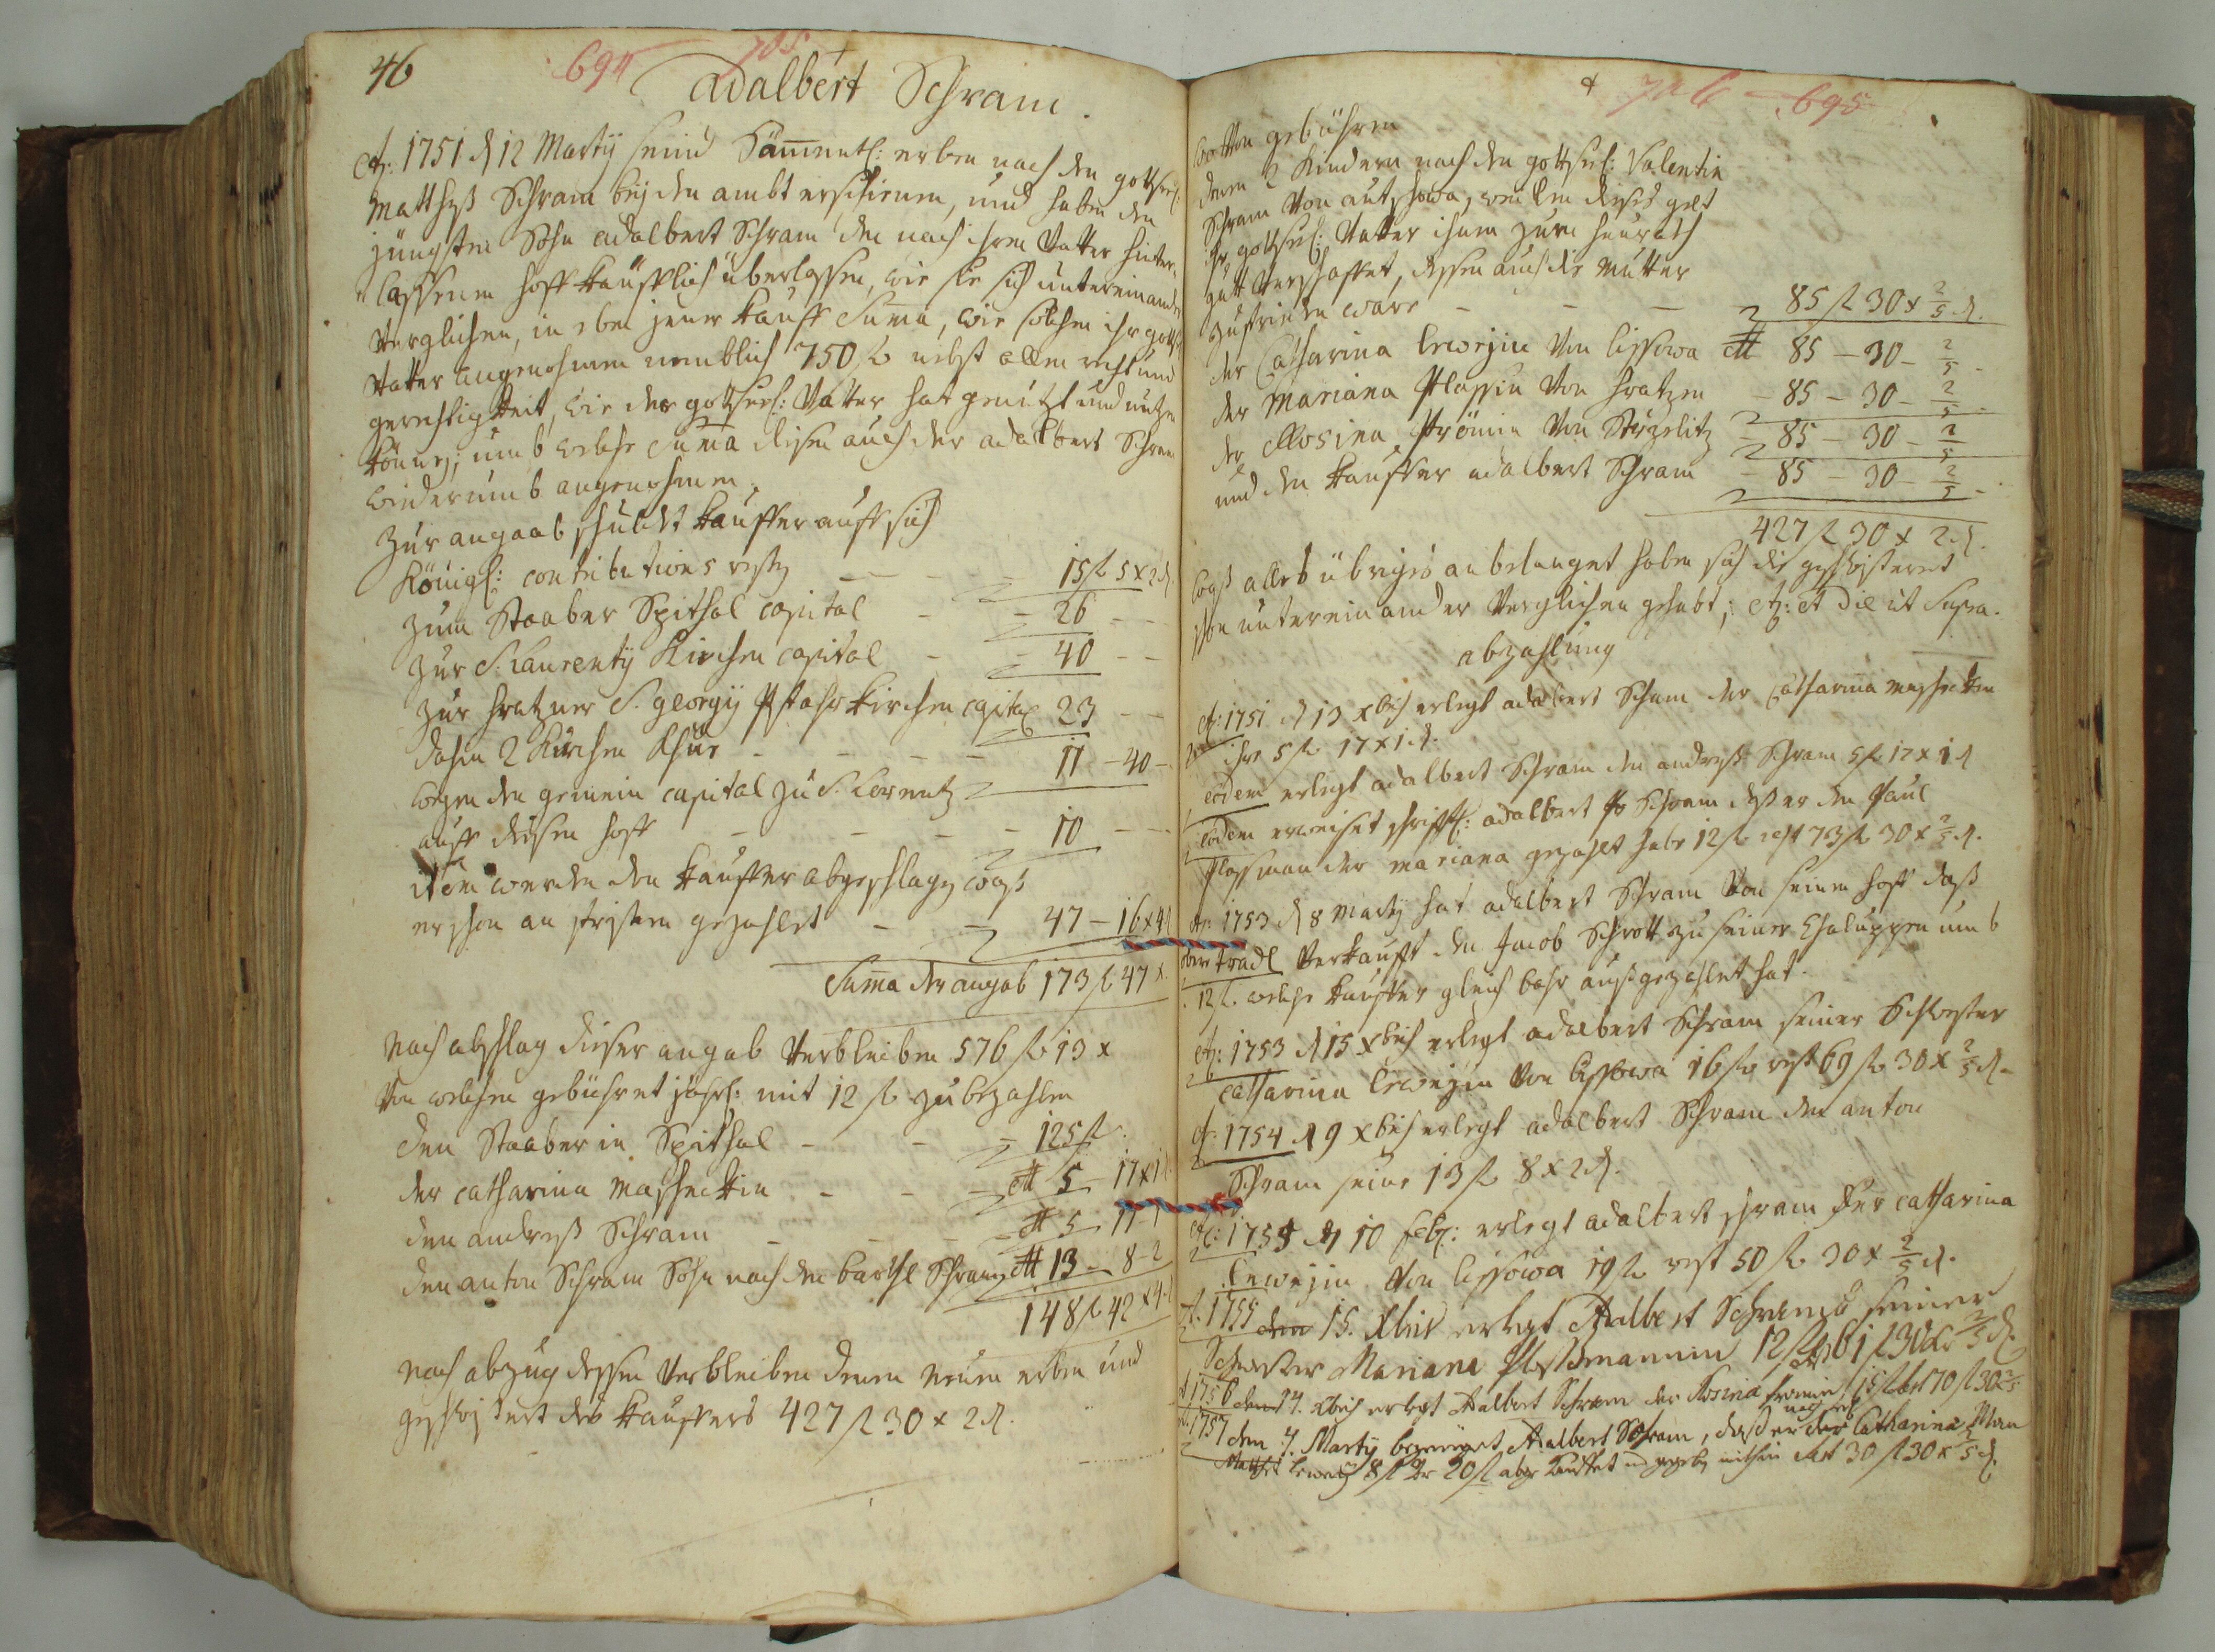 46 694 705
Adalbert Schram.
Aõ: 1751 d 12 Martÿ seind Sämmentl: erben nach den gottseel:
Matthÿß Schram beÿ den ambt erschienen, und haben den
jüngsten Sohn Adalbert Schram den nach ihren Vatter hinter-
lassenen hoff Kaüfflich überlassen, wie sie sich untereinander
Verglichen, in eben jener Kauff Suma, wie solchen ihr gotts:
Vatter angenohmen nemblich 750 f nebst allen recht und
gerechtigkeit, wie der gottseel: Vatter hat genützt und nutzen
können; umb welche Suma disen auch der Adalbert Schram
wiederumb angenohmen.
Zur angaab schuldt Kauffer auff sich
Königl: contributions rest 15 f 5 x 2 d.
zum Staaber Spithal capital 26
Zur S: Laurentÿ Kirchen capital 40
Zur hratzner S. Georgÿ Pfahr Kirchen capital 23
dahin 2 Kirchen Khüe 11 – 40 –
wegen den gemein capital zu S. Lorentz
auff disen hoff 10
item werden den Kauffer abgeschlagen was
er schon an fristen gezahlet 47 – 16 x 4 d
Suma der angab 173 f 47 x
Nach abschlag dieser angab Verbleiben 576 f 13 x
Von welchen gebühret jährl: mit 12 f zu bezahlen
den Staaber in Spithal 125 f.
der Catharina Maschecktin 5 – 17 x 1 d
den andreß Schram 5 – 17 – 1
den anton Schram Sohn nach den barthl Schram 13 – 8 – 2
148 f 42 x 4 d
Nach abzug dessen Verbleiben denen Neuen erben und
geschwistert des Kauffers 427 f 30 x 2 d.
706 695
Von gebühren
denen 2 Kindern nach den gottseel: Valentin
Schram Von autschowa, weillen dieses gelt
ihr gottseel: Vatter ihnen zum heürath
gutt Verschaffet, dessen auch die Mutter
zufrieden ware 85 f 30 x 2/5 d.
der Catharina Lewejin Von lissowa 85 – 30 – 2/5
der Mariana Plassin Von hratzen – 85 – 30 – 2/5
der Rosina Frömin Von 85 – 30 – 2/5
und den Kauffer Adalbert Schram – 85 – 30 – 2/5
427 f 30 x 2 d.
Waß alles übriges anbelanget haben sich die geschwistert
schon untereinander Verglichen gehabt; Aõ: et Die ut Supra.
abzahlung
Aõ: 1751 d 13 Xbris erlegt Adalbert Schram der Catharina Maschecktin
ihre 5 f 17 x 1 d.
eodem erlegt Adalbert Schram den andreß Schram 5 f 17 x 1 d
eodem erweiset schrifftl: Adalbert Schram daß er den Paul
Plassman der Mariana gezahlt habe 12 f rest 73 f 30 x 2/5 d.
Aõ: 1753 d 8 Martÿ hat Adalbert Schram Von seinen hoff daß
Verkaufft den Jacob Schrott zu seiner Chaluppen umb
12 f. welche Kauffer gleich bahr außgezahlet hat.
Aõ: 1753 d 15 Xbris erlegt Adalbert Schram seiner Schwester
Catharina Lewejin Von lissowa 16 f rest 69 f 30 x 2/5 d.
Aõ: 1754 d 9 Xbris erlegt Adalbert Schram den anton
Schram seine 13 f 8 x 2 d.
Aõ: 1755 d 10 feb: erlegt Adalbert Schram der Catharina
Lewejin Von lissowa 19 f rest 50 f 30 x 2/5 d.
Aõ. 1755 den 15. Xbris erlegt Adalbert Schram seiner
Schwester Mariana Plassmannin 12 f rest 61 f 30 x 2/5 d.
Aõ 1756 den 14. Xbris erlegt Adalbert Schram der Rosina Fromin 15 f rest 70 f 30 x 2/5
Aõ. 1757 den 4. Martÿ bezeuget Adalbert Schram, daß er der Catharina Man
Leweÿ 20 f mithin rest 30 f 30 x 2/5 d.